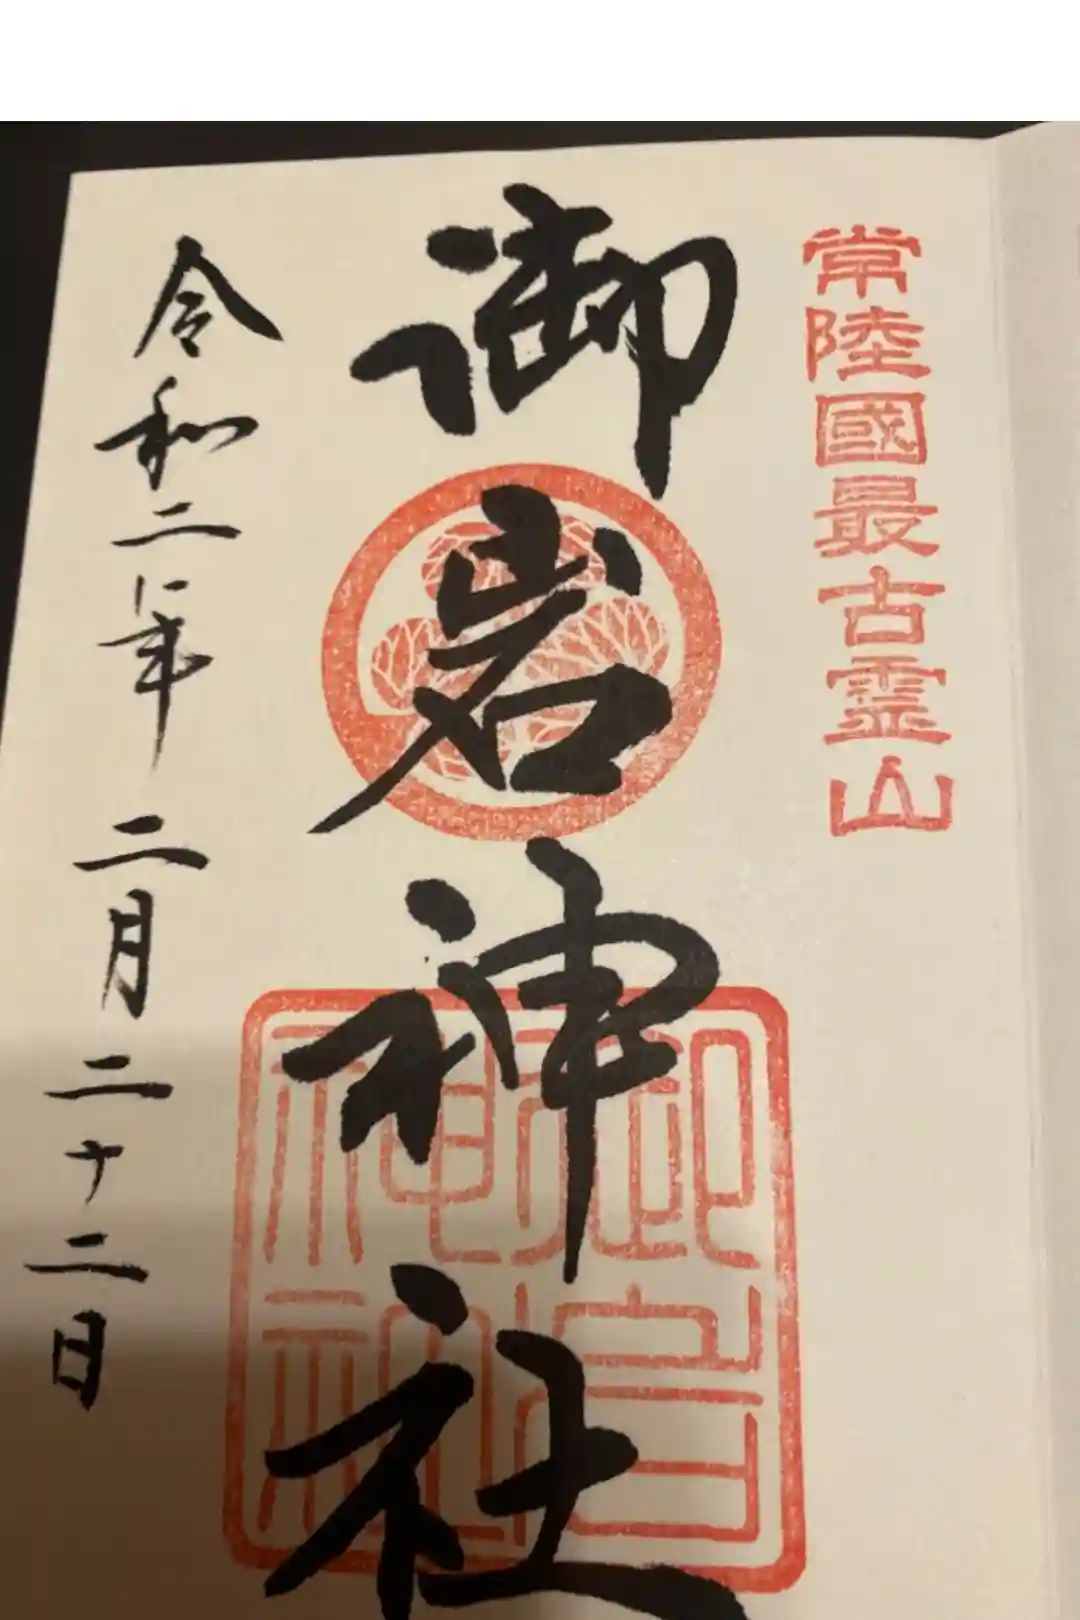 常陸國最古霊山
御岩神社
令和二年二月二十二日